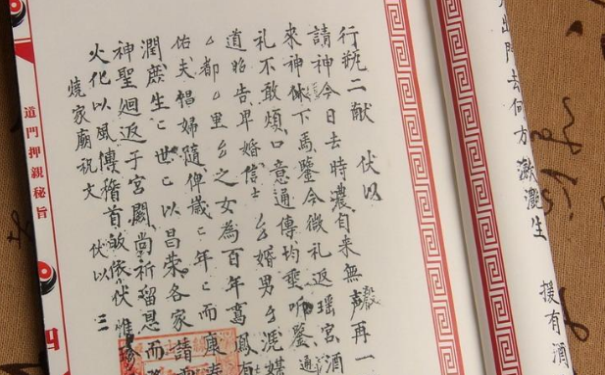 行瓶二献 伏以
請神今日去時濃自来無聲再一
来神休下馬鑒今微礼返瑶宮酒
礼不敢煩口意通傳均垂听鑒通
道昭告早婚信士厶婚男厶憑媒
厶都厶里厶之女為百年鳳有
佑夫倡婦隨俾歲〻年〻而康
潤蔭生〻世〻以昌荣各家請
神聖廻返于宮闕尚祈留恩而
火化以風傳稽首皈依伏惟珍
燒家廟祝文 伏以 三
道門押親秘旨
四
出門去何方 生
援有酒